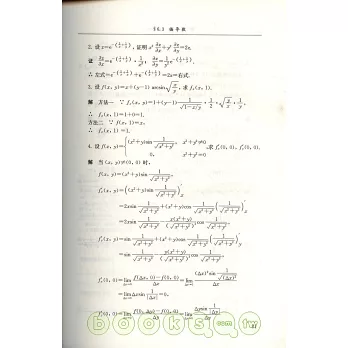 §6.3 偏导数
2. 设 z=e^{-(1/x+1/y)}, 证明 x² ∂z/∂x + y² ∂z/∂y = 2z.
证 ∂z/∂x = e^{-(1/x+1/y)}·1/x², ∂z/∂y = 1/y² e^{-(1/x+1/y)}.
∴ 左式=e^{-(1/x+1/y)}+e^{-(1/x+1/y)}=2z=右式.
3. 设 f(x, y)=x+(y-1) arcsin√(x/y), 求 f_x(x, 1).
解 方法一 ∵ f_x(x, y)=1+(y-1) 1/√(1-x/y) · 1/2 · √(y/x) · 1/y,
∴ f_x(x, 1)=1+0=1.
方法二 ∵ f(x, 1)=x,
∴ f_x(x, 1)=1.
4. 设 f(x, y)={(x²+y)sin 1/√(x²+y²), x²+y²≠0 求 f'_x(0, 0), f'_y(0, 0).
0, x²+y²=0
解 当 (x, y)≠(0, 0) 时,
f(x, y)=(x²+y)sin 1/√(x²+y²),
f'_x(x, y)=((x²+y)sin 1/√(x²+y²))'_x
=2xsin 1/√(x²+y²) +(x²+y)(sin 1/√(x²+y²))'_x
=2xsin 1/√(x²+y²) - x(x²+y)/(√(x²+y²))³ cos 1/√(x²+y²),
f'_y(x, y)=sin 1/√(x²+y²) +(x²+y)(sin 1/√(x²+y²))'_y
=sin 1/√(x²+y²) - y(x²+y)/(√(x²+y²))³ cos 1/√(x²+y²),
f'_x(0, 0)=lim f(Δx, 0)-f(0, 0)/Δx =lim (Δx)² sin 1/√(Δx)²/Δx
=lim Δxsin 1/|Δx| =0,
f'_y(0, 0)=lim f(0, Δy)-f(0, 0)/Δy =lim Δysin 1/|Δy|/Δy
books.com.tw